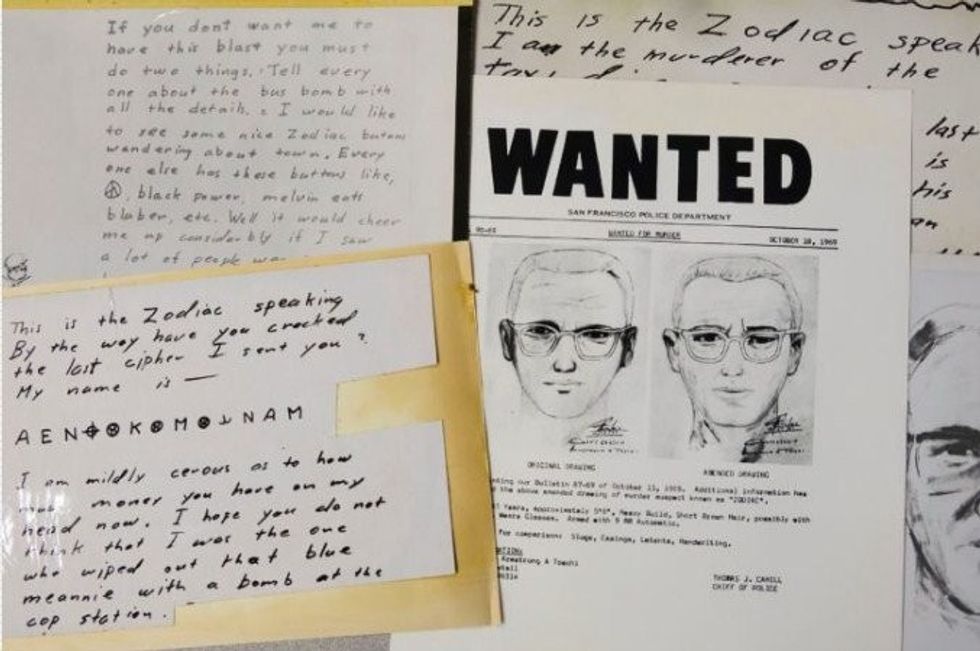 If you dont want me to
have this blast you must
do two things. Tell every
one about the bus bomb with
all the details. I would like
to see some nice Zodiac butons
wandering about town. Every
one else has these buttons like,
☮, black power, melvin eats
bluber, etc. Well it would cheer
me up considerbly if I saw
a lot of people
This is the Zodiac speaking
By the way have you cracked
the last cipher I sent you ?
My name is —
A E N ⌖ ⊗ K ⊗ M ⊗ ⅃ N A M
I am mildly cerous as to how
money you have on my
head now. I hope you do not
think that I was the one
who wiped out that blue
meannie with a bomb at the
cop station.
This is the Zodiac speak
I am the murderer of the
last
is
his
an
WANTED
SAN FRANCISCO POLICE DEPARTMENT
90-69 WANTED FOR MURDER OCTOBER 18, 1969
ORIGINAL DRAWING AMENDED DRAWING
our Bulletin 87-69 of October 13, 1969. Additional information has
the above amended drawing of murder suspect known as "ZODIAC".
Years, approximately 5'8", Heavy Build, Short Brown Hair, possibly with
Wears Glasses. Armed with 9 MM Automatic.
For comparison: Slugs, Casings, Latents, Handwriting.
Armstrong & Toschi
THOMAS J. CAHILL
CHIEF OF POLICE